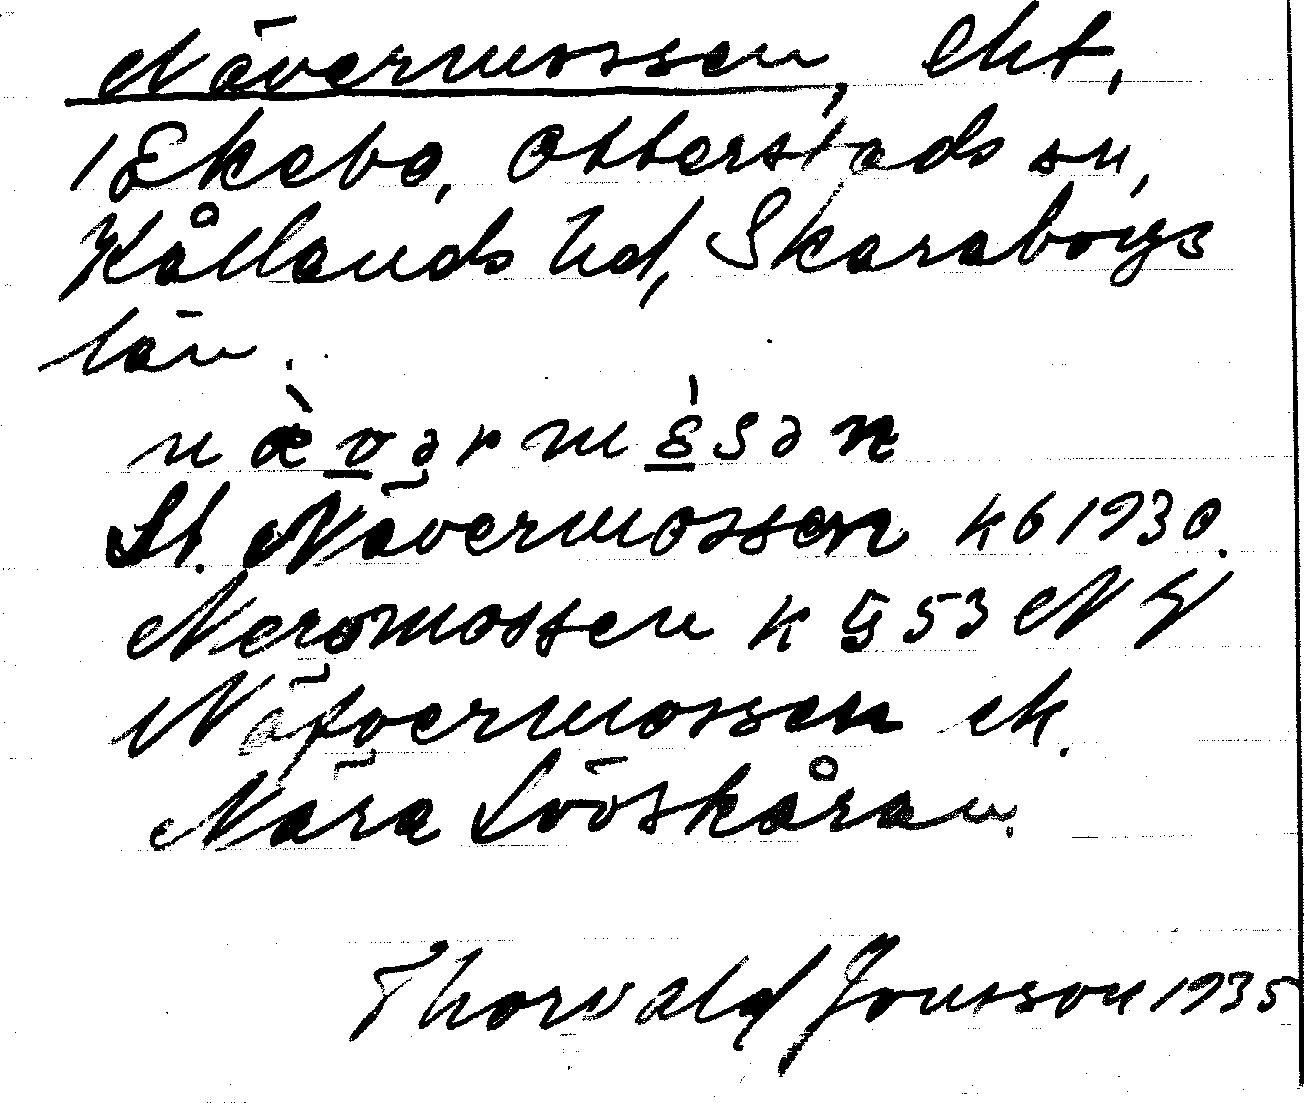 Nävermossen, ekt,
1 Ekebo, Otterstads sn,
Kållands hd, Skaraborgs
län.
nævərmɷsən
St. Nävermossen k6 1930.
Neromossen k G 53 NV
Näfvermossen ek.
Nära Lööskåran.
Thorvald Jonsson 1935